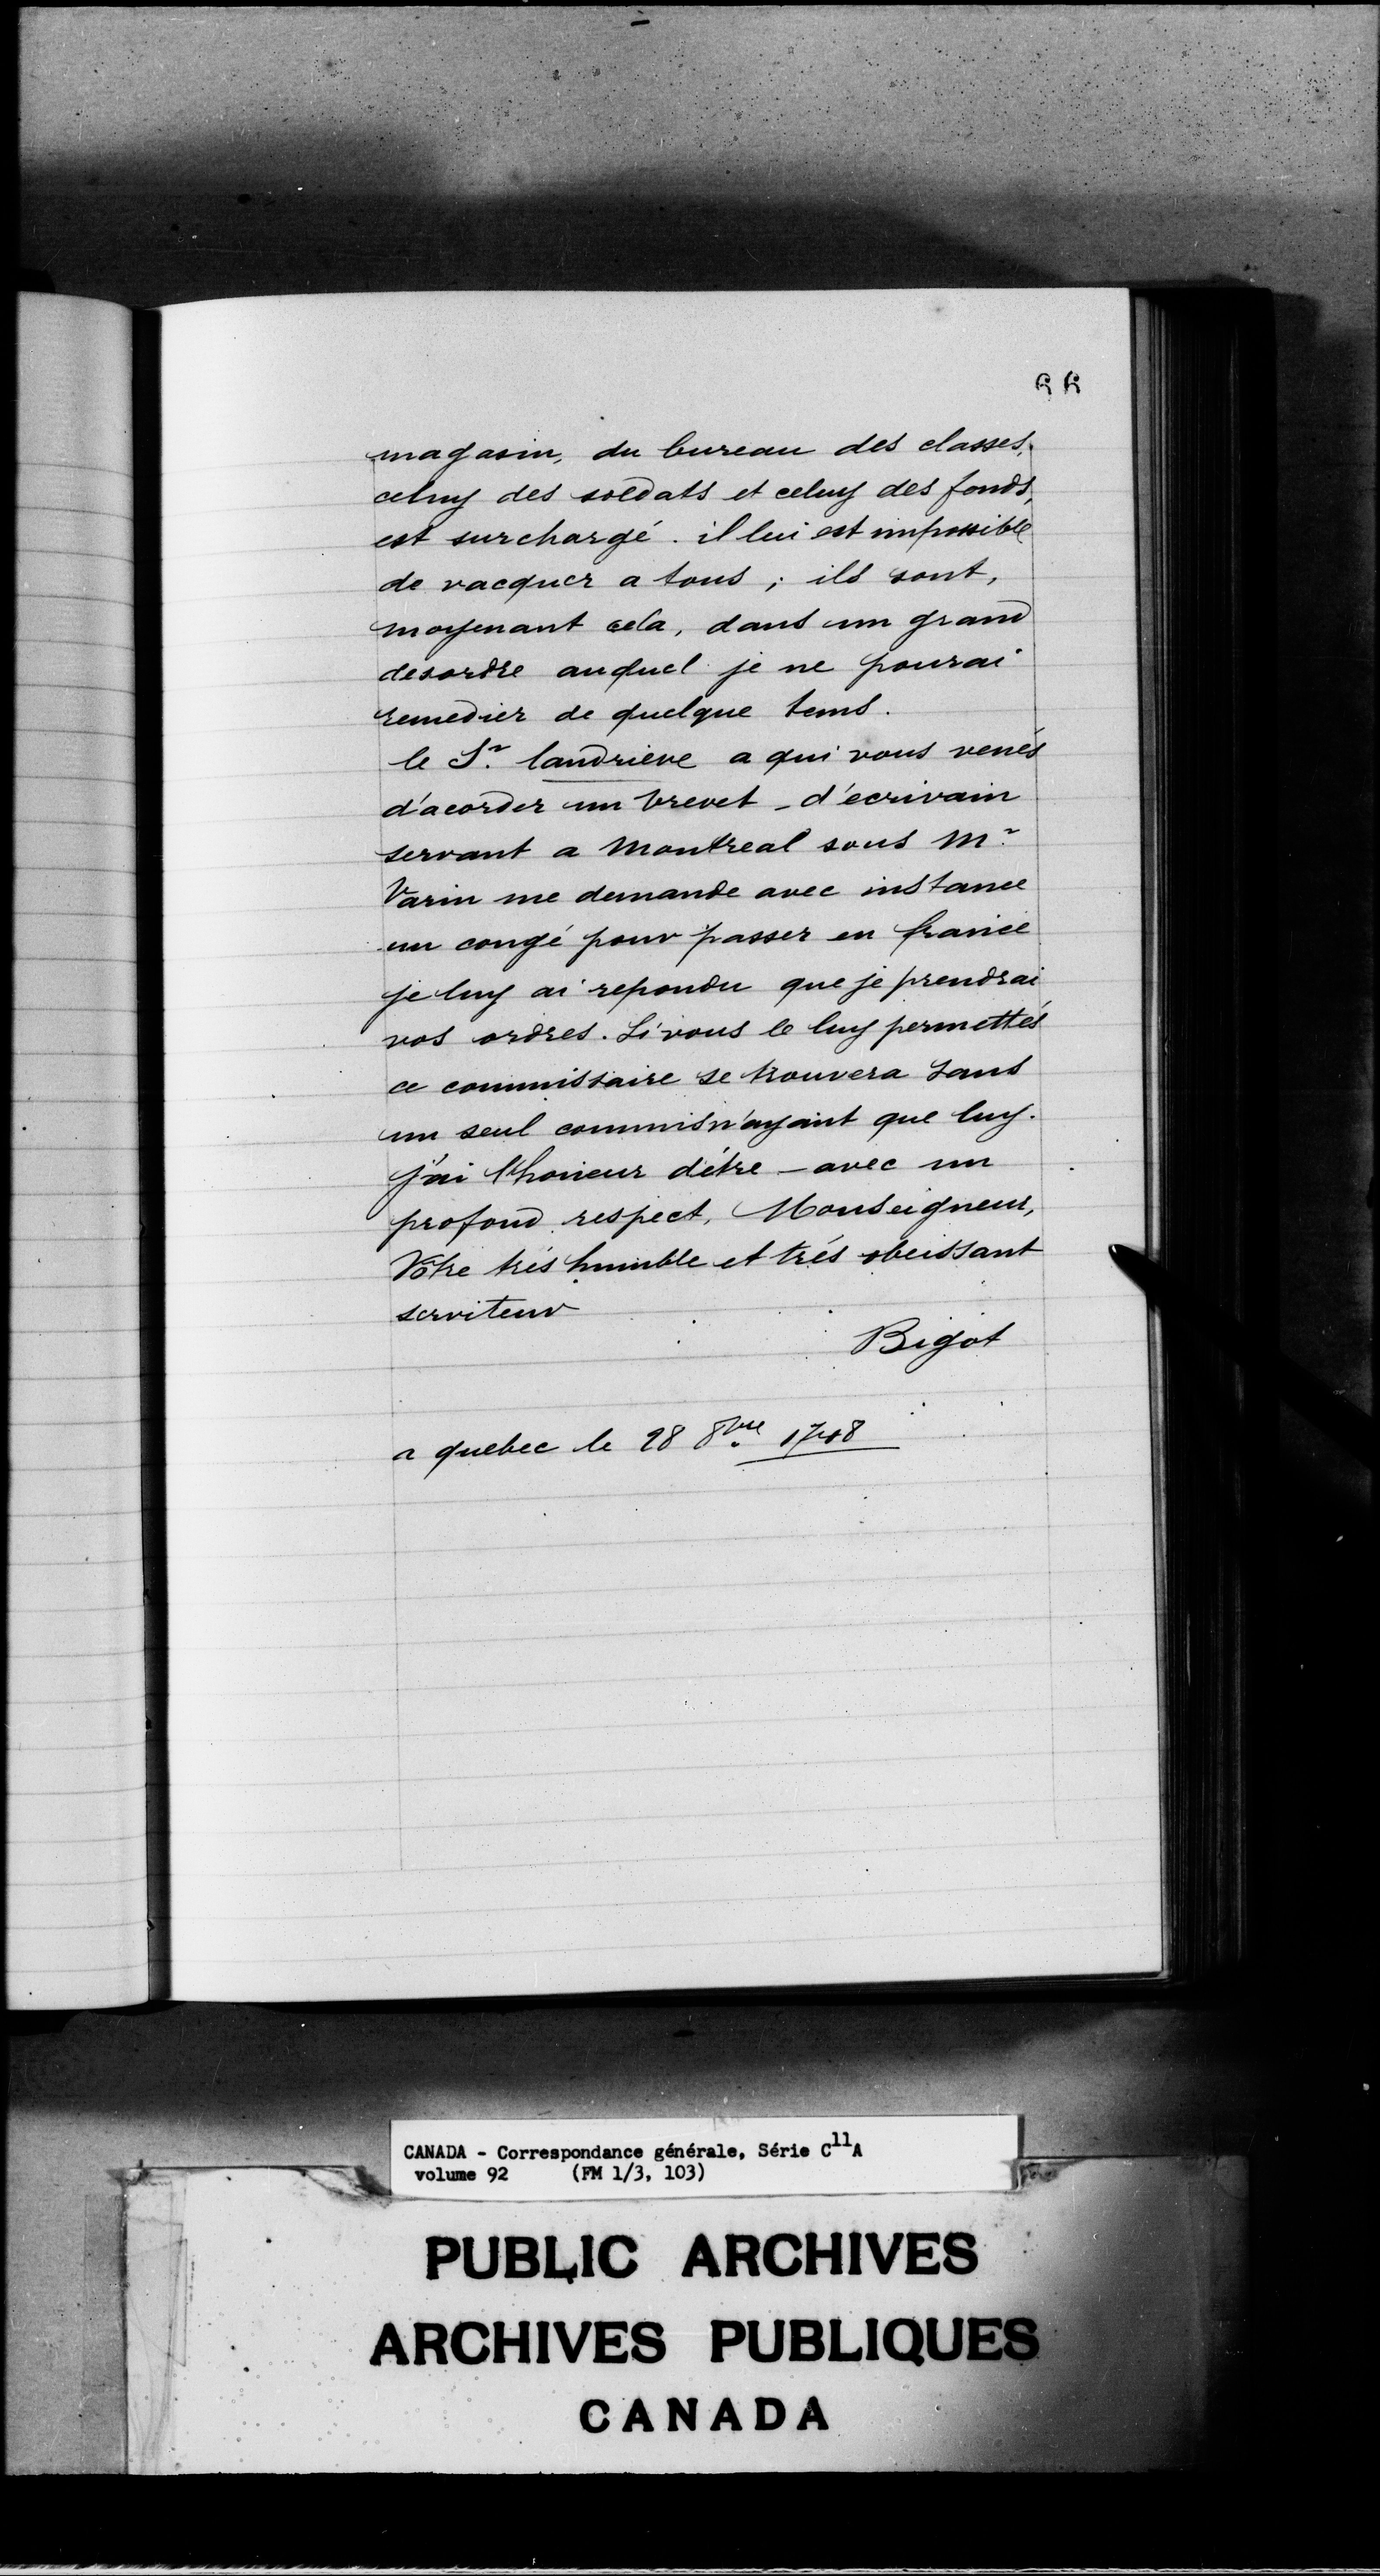 magasin, du bureau des classes,
celuy des soldats et celuy des fonds,
est surchargé. il lui est impossible
de vacquer a tous ; ils sont,
moyenant cela, dans un grand
desordre auquel je ne pourai
remedier de quelque tems.
le Sr. landrieve a qui vous venés
d'acorder un brevet - d'ecrivain
servant a Montreal sous Mr.
Varin me demande avec instance
un congé pour passer en france
je luy ai repondu que je prendrai
vos ordres. Si vous le luy permettés
ce commissaire se trouvera sans
un seul commis n'ayant que luy.
j'ai l'honeur d'étre - avec un
profond respect, Monseigneur,
Vôtre trés humble et trés obeissant
serviteur
Bigot
a quebec le 28 8bre 1748
CANADA - Correspondance générale, Série C11A
volume 92 (FM 1/3, 103)
PUBLIC ARCHIVES
ARCHIVES PUBLIQUES
CANADA